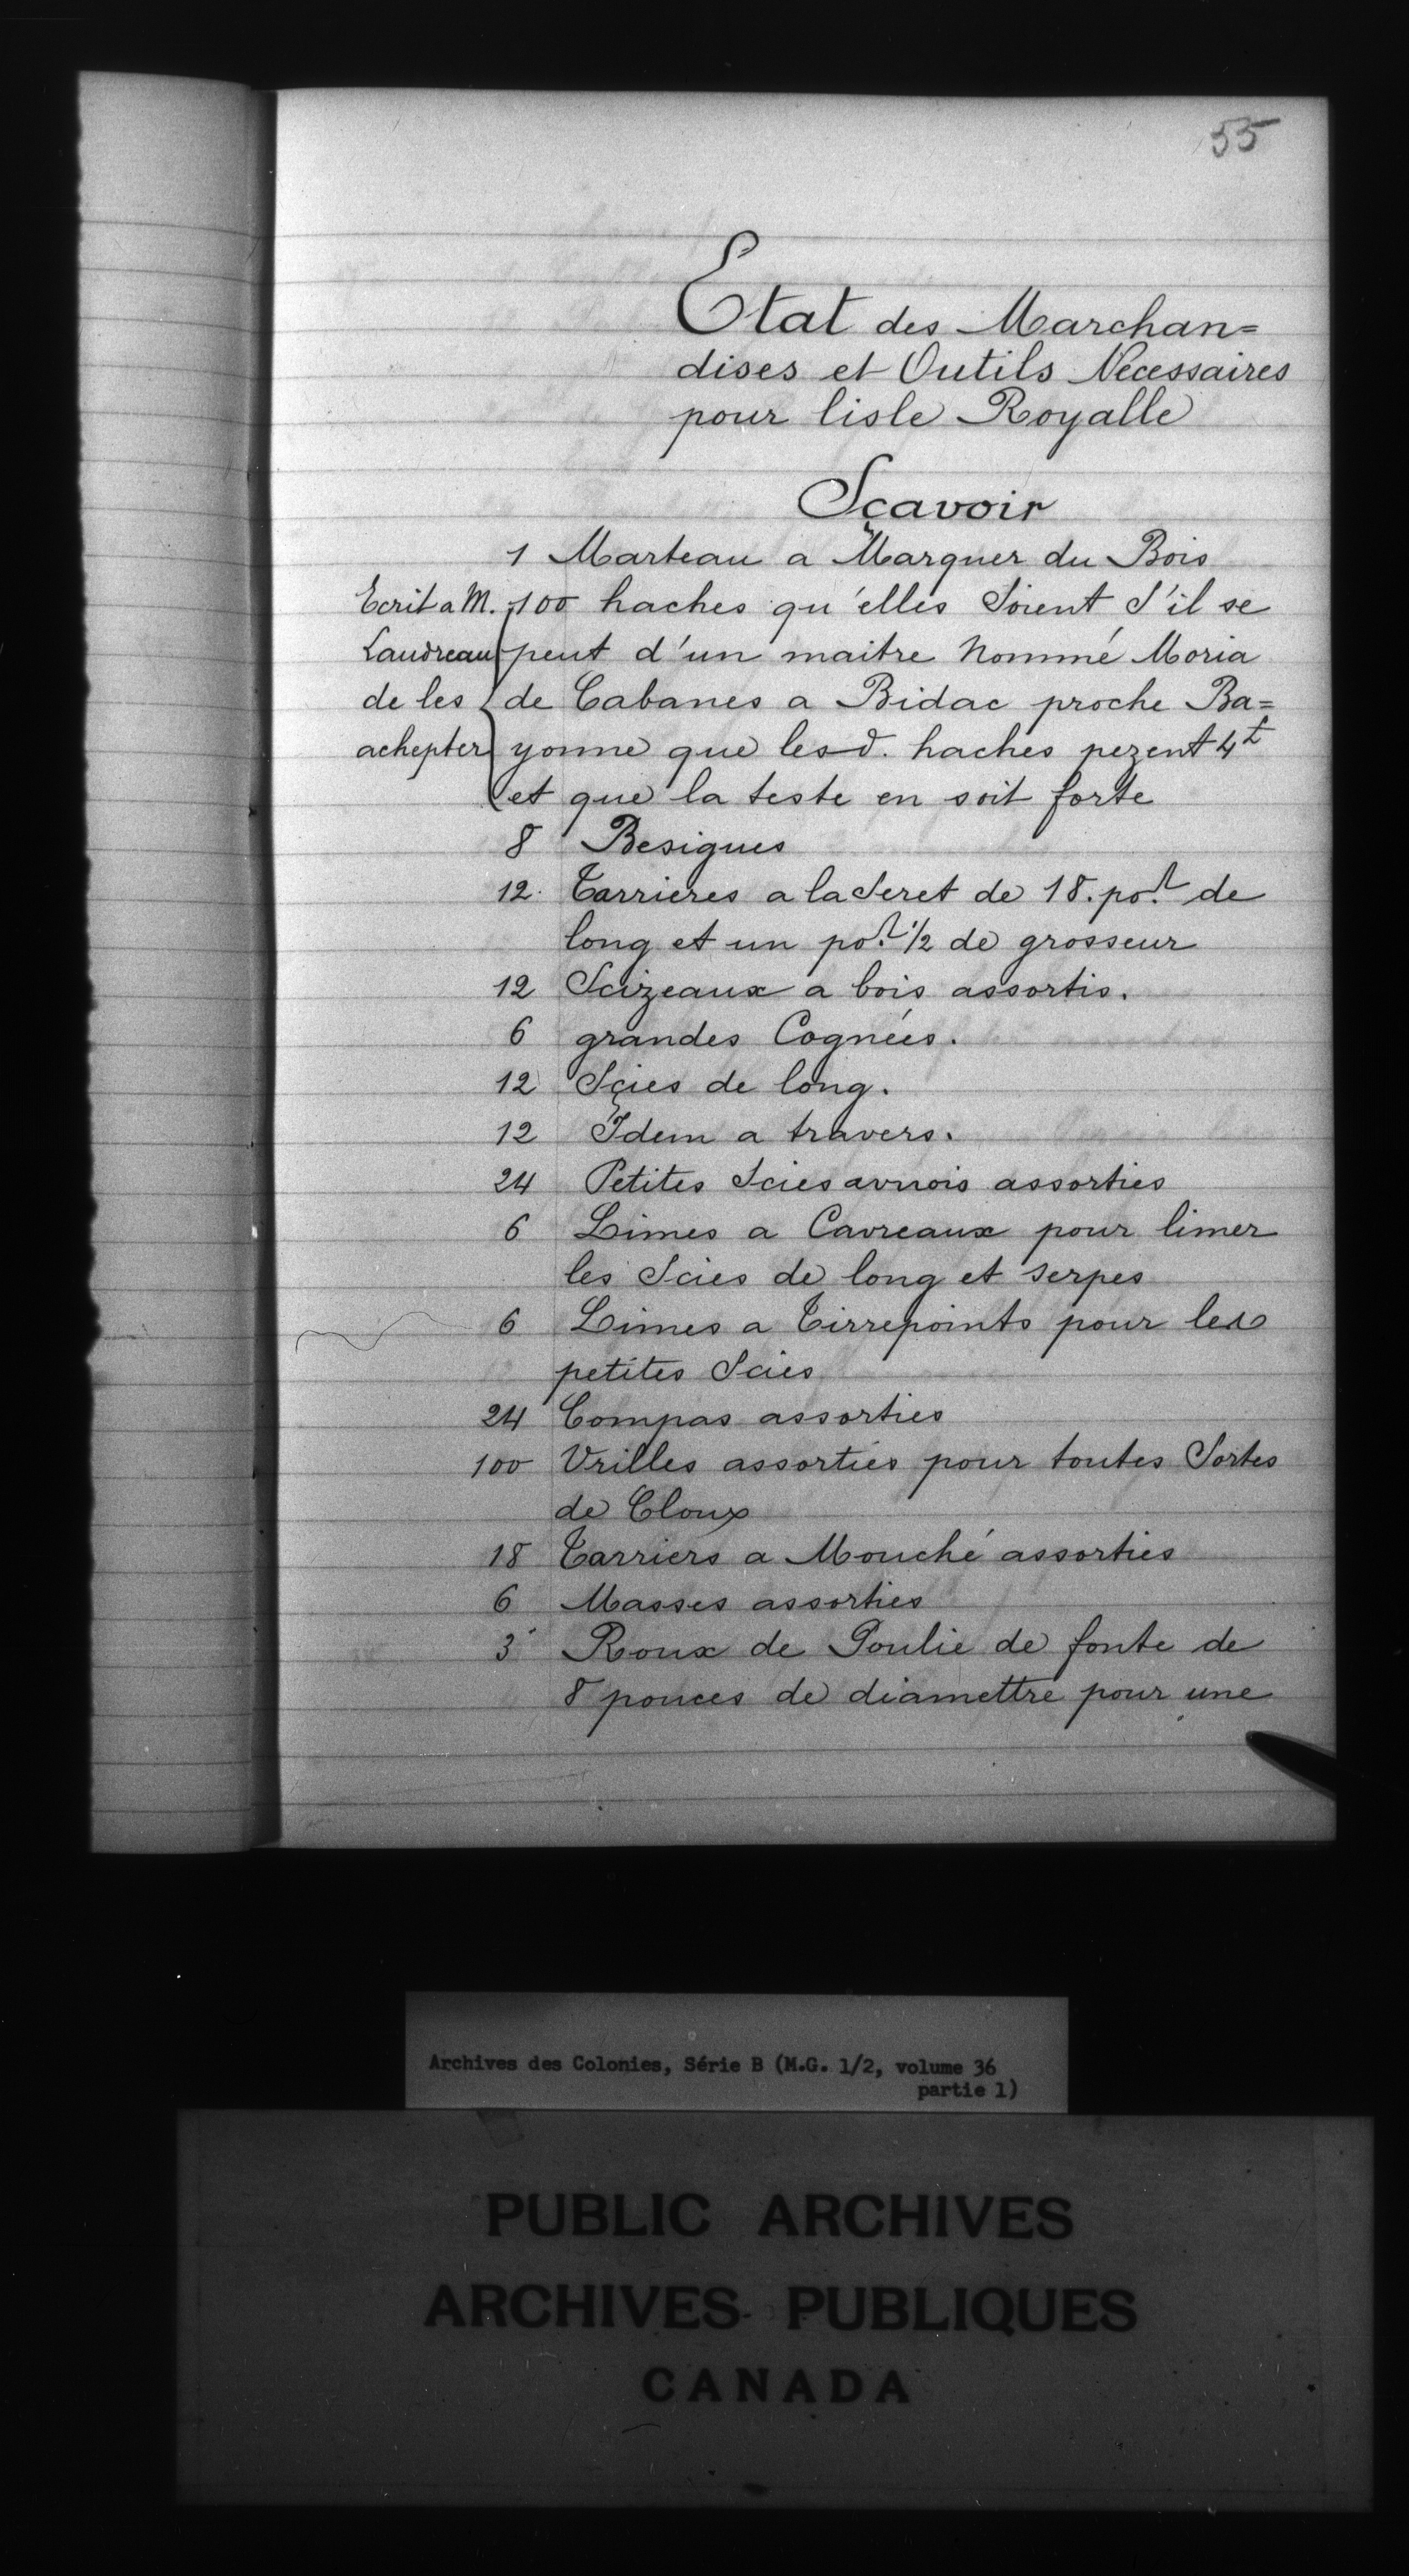 55
Etat des Marchan=
dises et Outils Necessaires
pour lisle Royalle
Sçavoir
1 Marteau a Marquer du Bois
Ecrit a M. 100 haches qu'elles Soient S'il se
Laudreau peut d'un maitre Nommé Moria
de les de Cabanes a Bidac proche Ba=
achepter yonne que lesd. haches pezent 4t
et que la teste en soit forte
8 Besigues
12. Tarrieres a la Seret de 18. po. de
long et un po. 1/2 de grosseur
12 Scizeaux a bois assortis.
6 grandes Cognées.
12 Sçies de long.
12 Idem a travers.
24 Petites Scies assorties
6 Limes a Carreaux pour limer
les Scies de long et serpes
6 Limes a Tirrepoints pour les
petites Scies
24 Compas assorties
100 Vrilles assorties pour toutes Sortes
de Cloux
18 Tarriers a Mouché assorties
6 Masses assorties
3 Roux de Poulie de fonte de
8 pouces de diamettre pour une
Archives des Colonies, Série B (M.G. 1/2, volume 36
partie 1)
PUBLIC ARCHIVES
ARCHIVES PUBLIQUES
CANADA